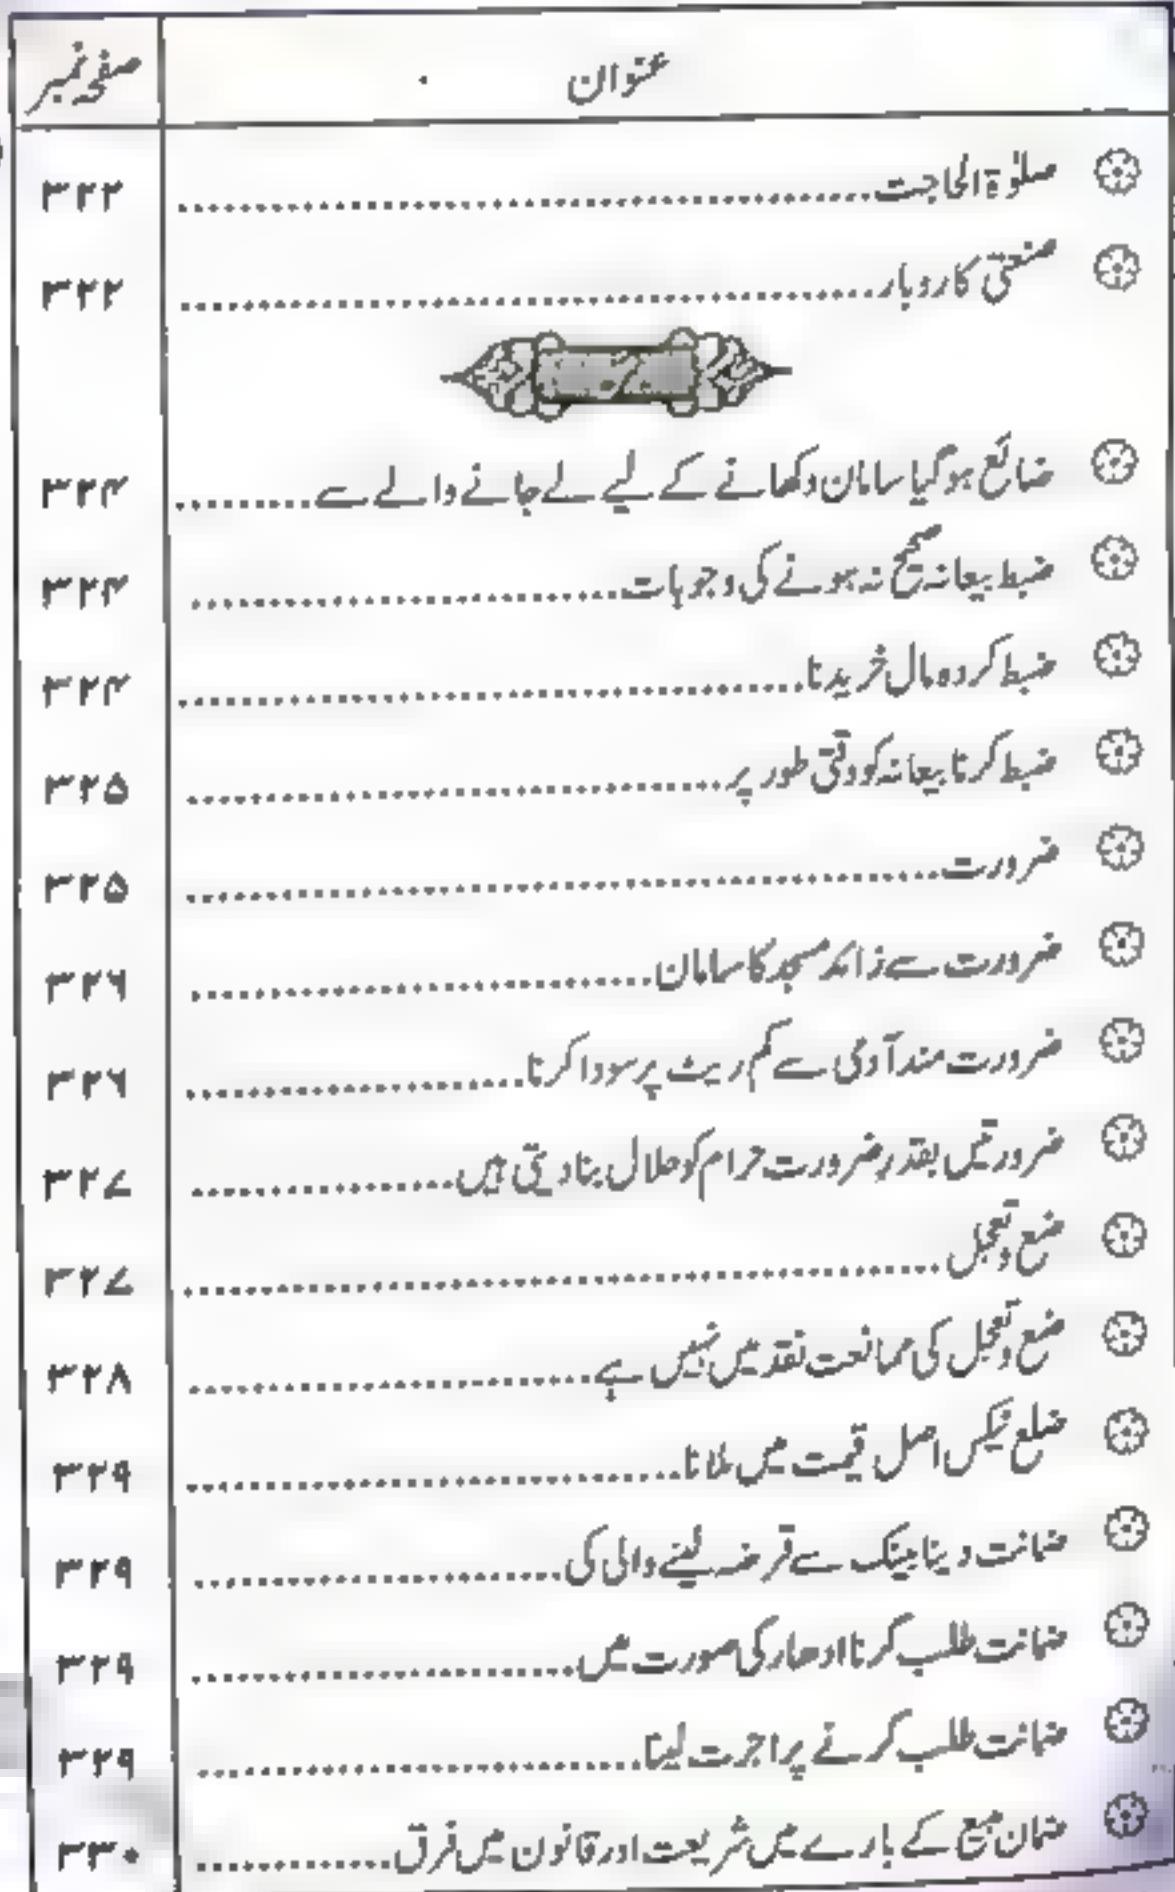 عنوان	صفحہ نمبر
صلوٰۃ الحاجت	۳۲۲
صنعتی کاروبار	۳۲۲
ض
ضائع ہوگیا سامان دکھانے کے لیے لے جانے والے سے	۳۲۴
ضبط بیعانہ صحیح نہ ہونے کی وجوہات	۳۲۴
ضبط کردہ مال خریدنا	۳۲۴
ضبط کرنا بیعانہ کو وقتی طور پر	۳۲۵
ضرورت	۳۲۵
ضرورت سے زائد مسجد کا سامان	۳۲۶
ضرورت مند آدمی سے کم ریٹ پر سودا کرنا	۳۲۶
ضرورتیں بقدرِ ضرورت حرام کو حلال بنا دیتی ہیں	۳۲۷
ضع وتعجل	۳۲۷
ضع وتعجل کی ممانعت نقد میں نہیں ہے	۳۲۸
ضلع ٹیکس اصل قیمت میں ملانا	۳۲۹
ضمانت دینا بینک سے قرضہ لینے والی کی	۳۲۹
ضمانت طلب کرنا ادھار کی صورت میں	۳۲۹
ضمانت طلب کرنے پر اجرت لینا	۳۲۹
ضمان مبیع کے بارے میں شریعت اور قانون میں فرق	۳۳۰